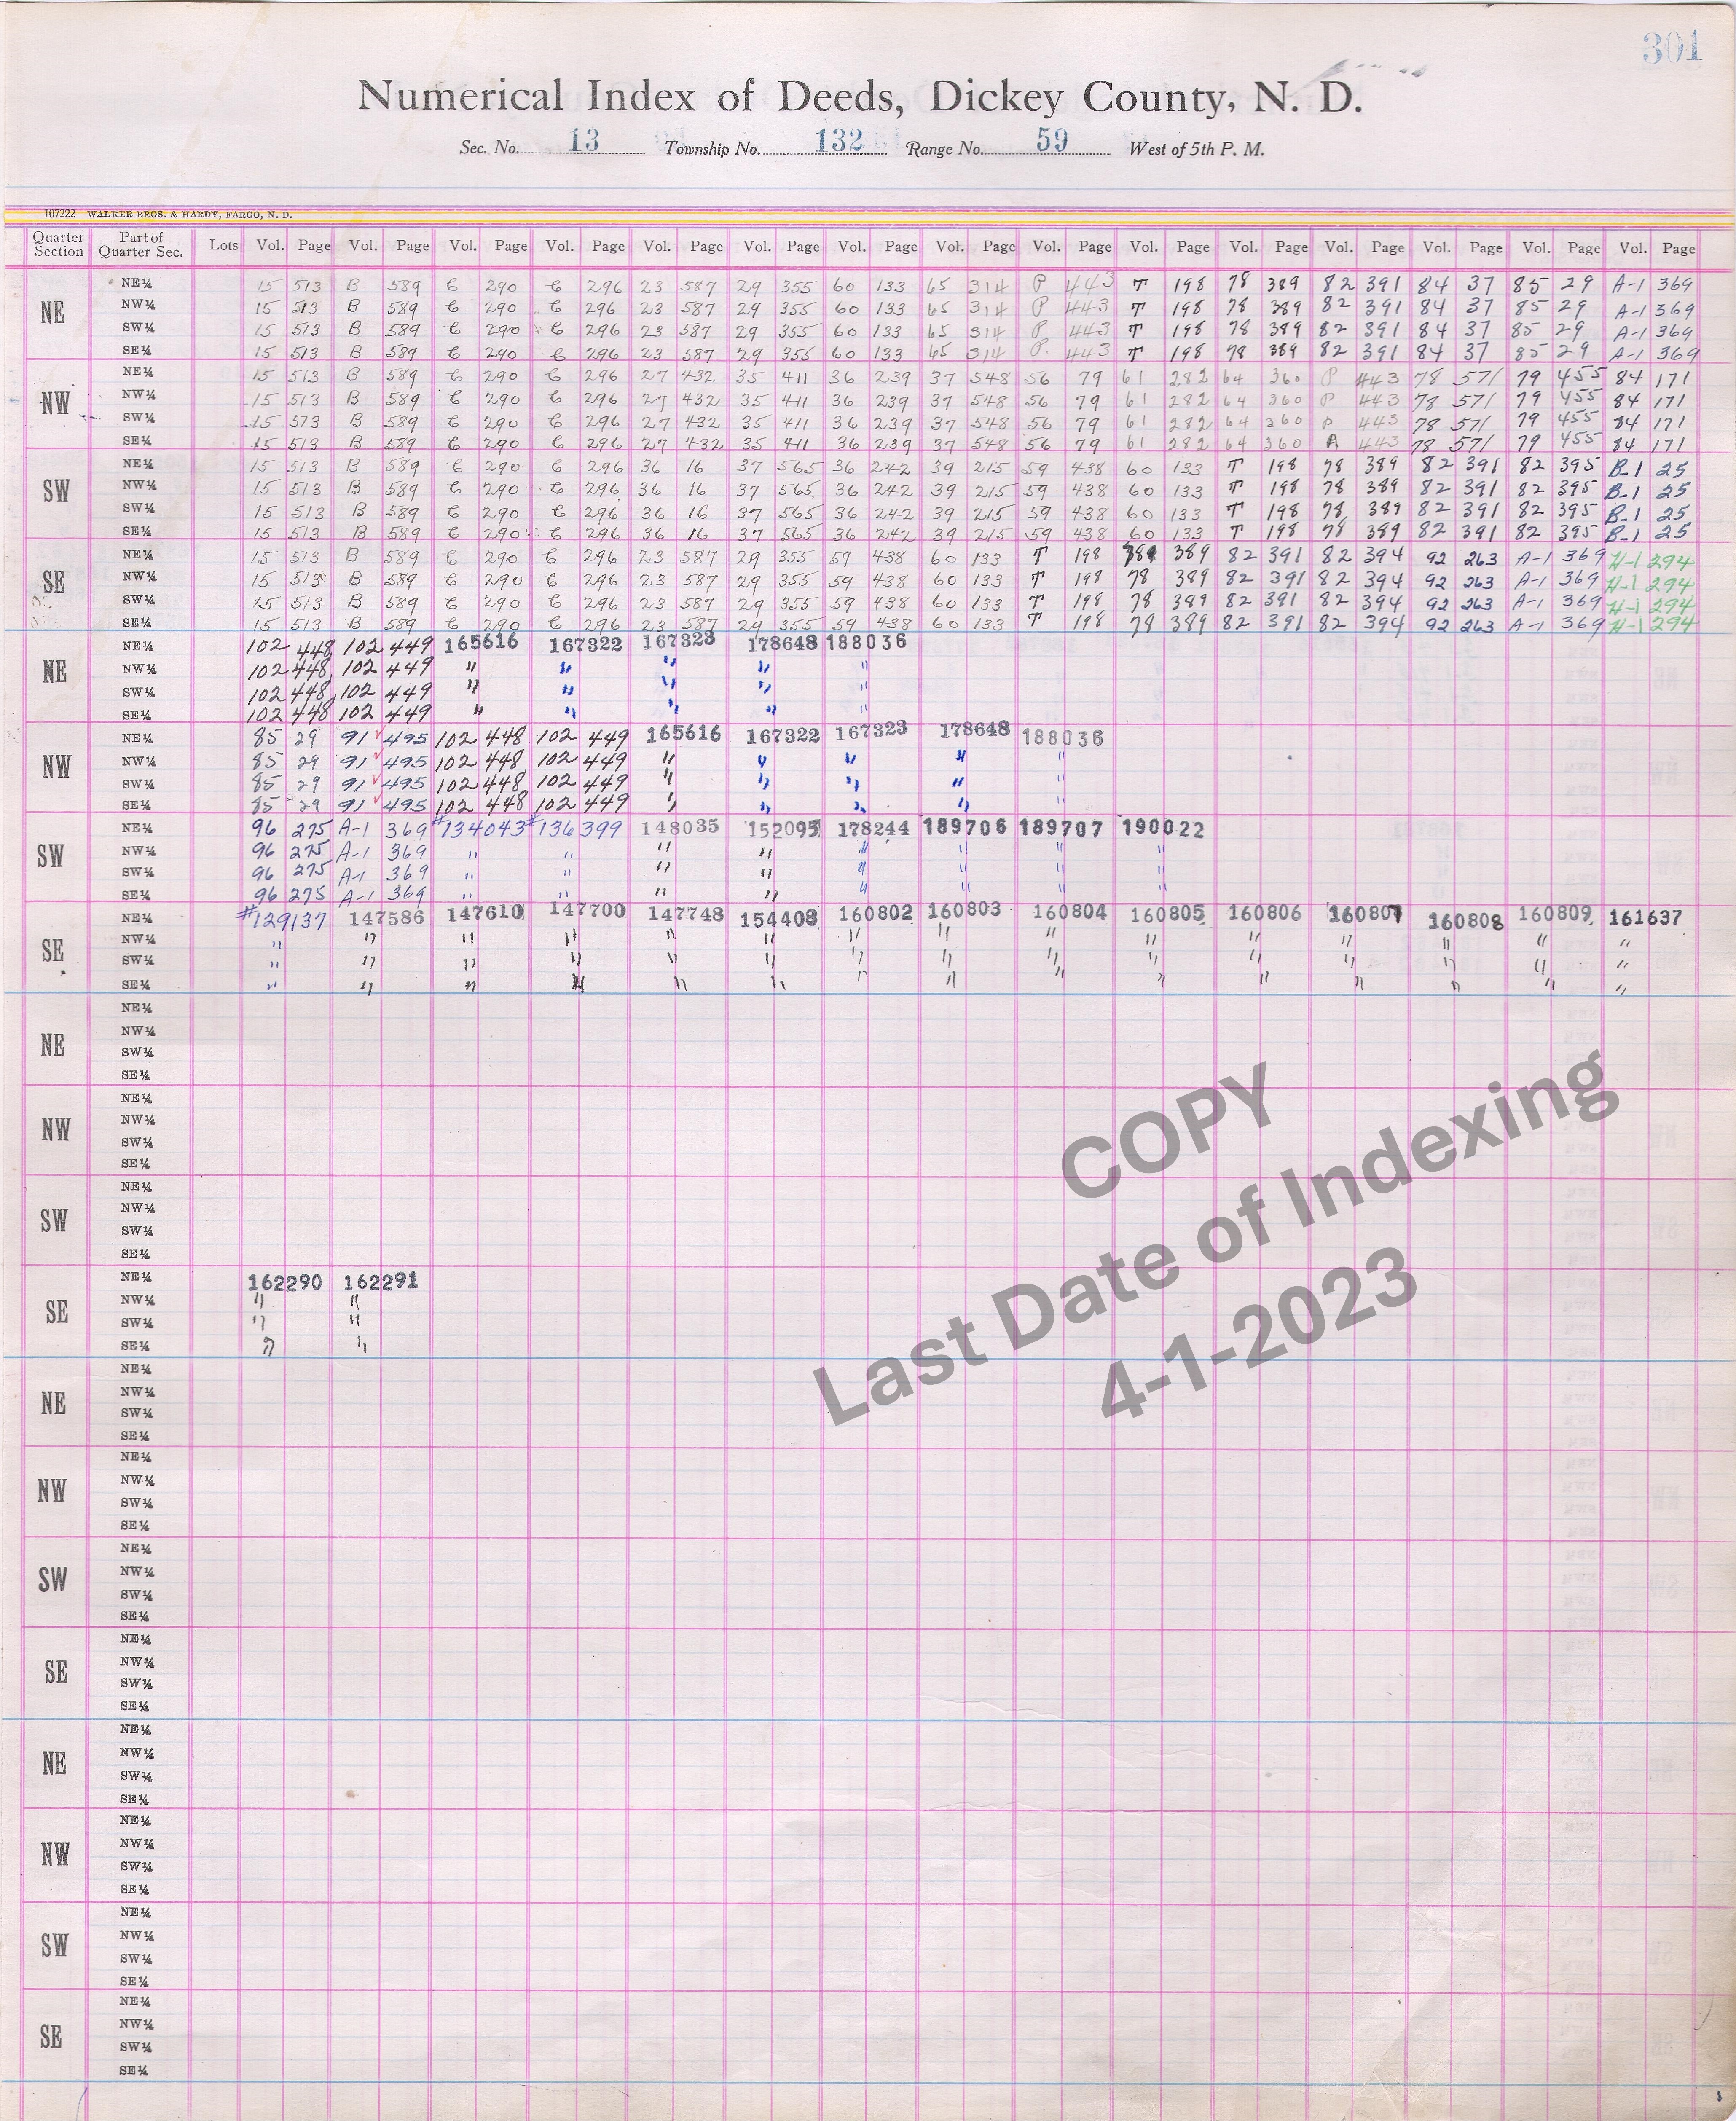 301
Numerical Index of Deeds, Dickey County, N. D.
Sec. No. 13 Township No. 132 Range No. 59 West of 5th P. M.
107222 WALKER BROS. & HARDY, FARGO, N. D.
Quarter Section Part of Quarter Sec. Lots Vol. Page Vol. Page Vol. Page Vol. Page Vol. Page Vol. Page Vol. Page Vol. Page Vol. Page Vol. Page Vol. Page Vol. Page Vol. Page Vol. Page Vol. Page
NE
NE¼ 15 513 B 589 C 290 C 296 23 587 29 355 60 133 65 314 P 443 T 198 78 389 82 391 84 37 85 29 A-1 369
NW¼ 15 513 B 589 C 290 C 296 23 587 29 355 60 133 65 314 P 443 T 198 78 389 82 391 84 37 85 29 A-1 369
SW¼ 15 513 B 589 C 290 C 296 23 587 29 355 60 133 65 314 P 443 T 198 78 389 82 391 84 37 85 29 A-1 369
SE¼ 15 513 B 589 C 290 C 296 23 587 29 355 60 133 65 314 P. 443 T 198 78 389 82 391 84 37 85 29 A-1 369
NW
NE¼ 15 513 B 589 C 290 C 296 27 432 35 411 36 239 37 548 56 79 61 282 64 360 P 443 78 571 79 455 84 171
NW¼ 15 513 B 589 C 290 C 296 27 432 35 411 36 239 37 548 56 79 61 282 64 360 P 443 78 571 79 455 84 171
SW¼ 15 513 B 589 C 290 C 296 27 432 35 411 36 239 37 548 56 79 61 282 64 360 P 443 78 571 79 455 84 171
SE¼ 15 513 B 589 C 290 C 296 27 432 35 411 36 239 37 548 56 79 61 282 64 360 443 78 571 79 455 84 171
SW
NE¼ 15 513 B 589 C 290 C 296 36 16 37 565 36 242 39 215 59 438 60 133 T 198 78 389 82 391 82 395 B-1 25
NW¼ 15 513 B 589 C 290 C 296 36 16 37 565 36 242 39 215 59 438 60 133 T 198 78 389 82 391 82 395 B-1 25
SW¼ 15 513 B 589 C 290 C 296 36 16 37 565 36 242 39 215 59 438 60 133 T 198 78 389 82 391 82 395 B-1 25
SE¼ 15 513 B 589 C 290 C 296 36 16 37 565 36 242 39 215 59 438 60 133 T 198 78 389 82 391 82 395 B-1 25
SE
NE¼ 15 513 B 589 C 290 C 296 23 587 29 355 59 438 60 133 T 198 389 82 391 82 394 92 263 A-1 369 H-1 294
NW¼ 15 513 B 589 C 290 C 296 23 587 29 355 59 438 60 133 T 198 78 389 82 391 82 394 92 263 A-1 369 H-1 294
SW¼ 15 513 B 589 C 290 C 296 23 587 29 355 59 438 60 133 T 198 78 389 82 391 82 394 92 263 A-1 369 H-1 294
SE¼ 15 513 B 589 C 290 C 296 23 587 29 355 59 438 60 133 T 198 78 389 82 391 82 394 92 263 A-1 369 H-1 294
NE
NE¼ 102 448 102 449 165616 167322 167323 178648 188036
NW¼ 102 448 102 449 " " " " "
SW¼ 102 448 102 449 " " " " "
SE¼ 102 448 102 449 " " " " "
NW
NE¼ 85 29 91 ✓ 495 102 448 102 449 165616 167322 167323 178648 188036
NW¼ 85 29 91 ✓ 495 102 448 102 449 " " " " "
SW¼ 85 29 91 ✓ 495 102 448 102 449 " " " " "
SE¼ 85 29 91 ✓ 495 102 448 102 449 " " " " "
SW
NE¼ 96 275 A-1 369 #134043 #136399 148035 152095 178244 189706 189707 190022
NW¼ 96 275 A-1 369 " " " " " " " "
SW¼ 96 275 A-1 369 " " " " " " " "
SE¼ 96 275 A-1 369 " " " " " " " "
SE
NE¼ #129137 147586 147610 147700 147748 154408 160802 160803 160804 160805 160806 160807 160808 160809 161637
NW¼ " " " " " " " " " " " " " " "
SW¼ " " " " " " " " " " " " " " "
SE¼ " " " " " " " " " " " " " " "
NE
NE¼
NW¼
SW¼
SE¼
NW
NE¼
NW¼
SW¼
SE¼
SW
NE¼
NW¼
SW¼
SE¼
SE
NE¼ 162290 162291
NW¼ " "
SW¼ " "
SE¼ " "
COPY
Last Date of Indexing
4-1-2023
NE
NE¼
NW¼
SW¼
SE¼
NW
NE¼
NW¼
SW¼
SE¼
SW
NE¼
NW¼
SW¼
SE¼
SE
NE¼
NW¼
SW¼
SE¼
NE
NE¼
NW¼
SW¼
SE¼
NW
NE¼
NW¼
SW¼
SE¼
SW
NE¼
NW¼
SW¼
SE¼
SE
NE¼
NW¼
SW¼
SE¼